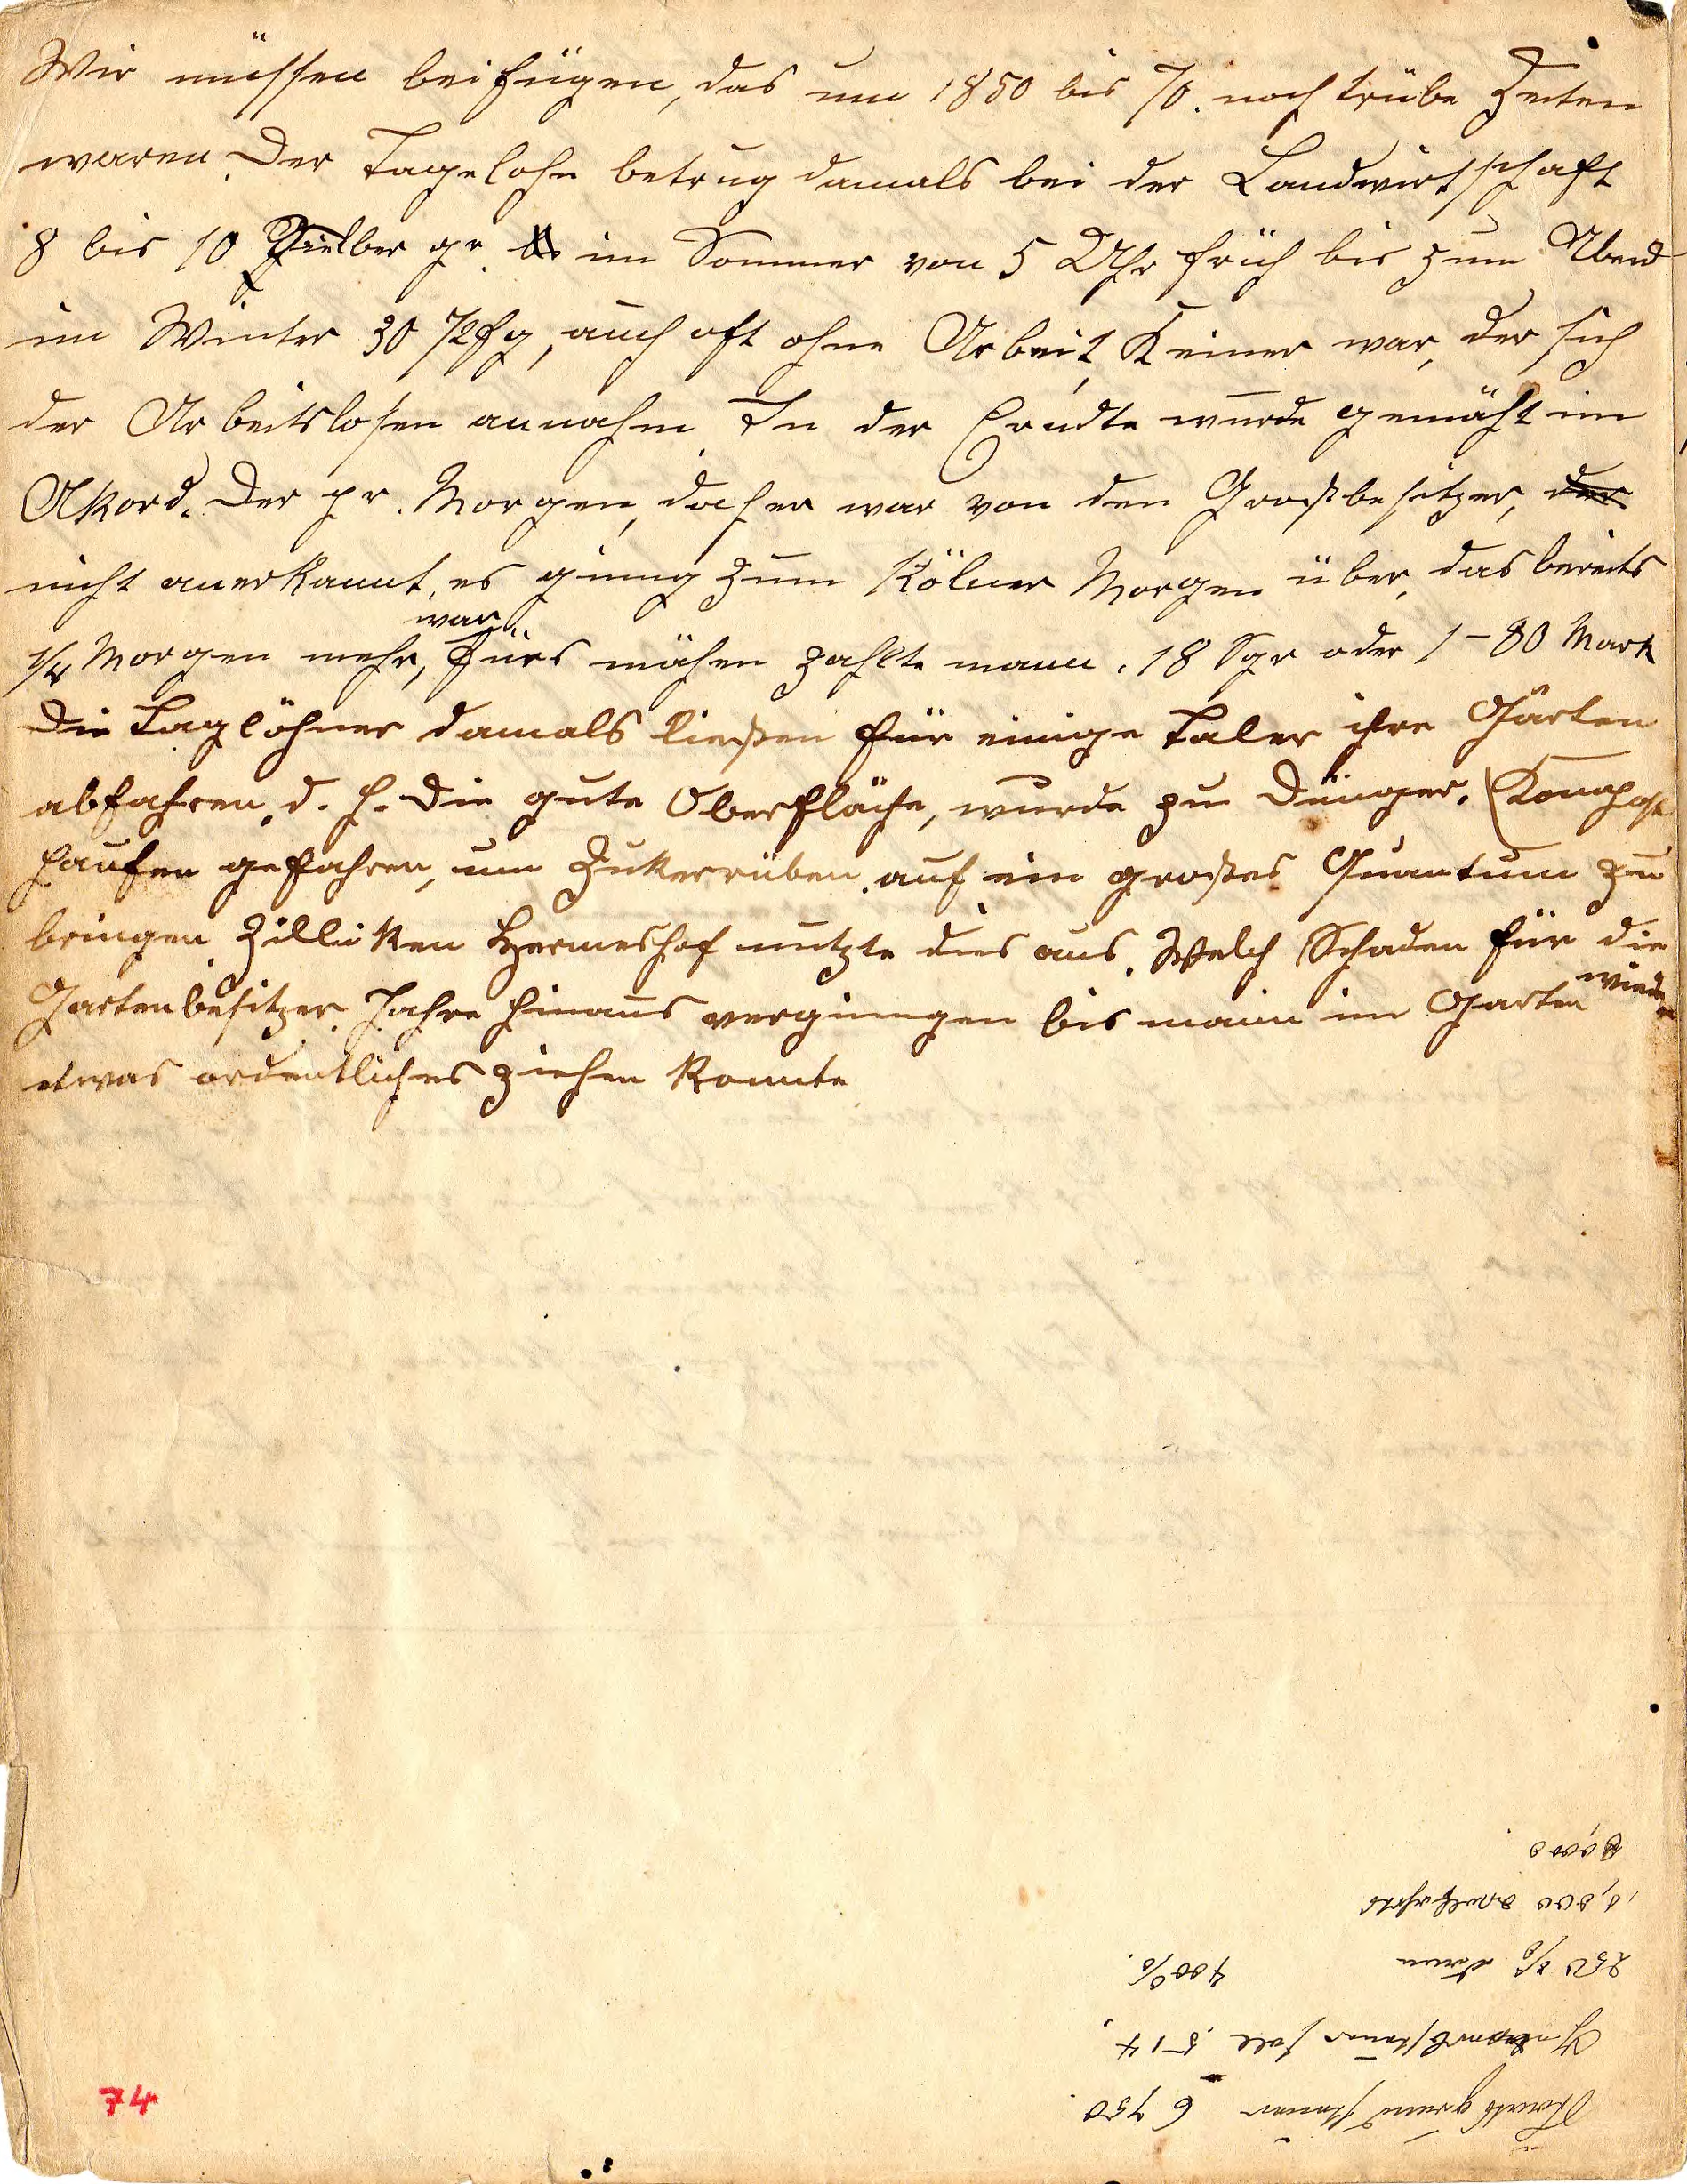 Wir müssen beifügen, das um 1850 bis 70. noch trübe Zeiten
waren. Der Tagelohn betrug damals bei der Landwirtschaft
8 bis 10 Sielber gr. im Sommer von 5 Uhr früh bis zum Abend
im Winter 30 Pfg, auch oft ohne Arbeit, Keiner war, der sich
der Arbeitslosen annahm. In der Erndte wurde gemäht im
Akord. Der pr. Morgen, daher war von den Grosbesitzer, der
nicht anerkannt, es ginng zum Kölner Morgen über, das bereits
1/4 Morgen mehr, war fürs mähen zahlte mann. 18 Sgr oder 1-80 Mark
Die Taglöhner damals ließen für einige Taler ihre Gärten
abfahren, d. h. die gute Oberfläche, wurde zu Dünger. (Kompost
haufen gefahren, um Zukerrüben auf ein großes Quantum zu
bringen. Zilliken Hermeshof nutzte dies aus. Welch Schaden für die
Gartenbesitzer. Jahre hinaus verginngen bis mann im Garten wieder
etwas ordentliches ziehen konnte
6 750
soll 514
250 % 400%
74